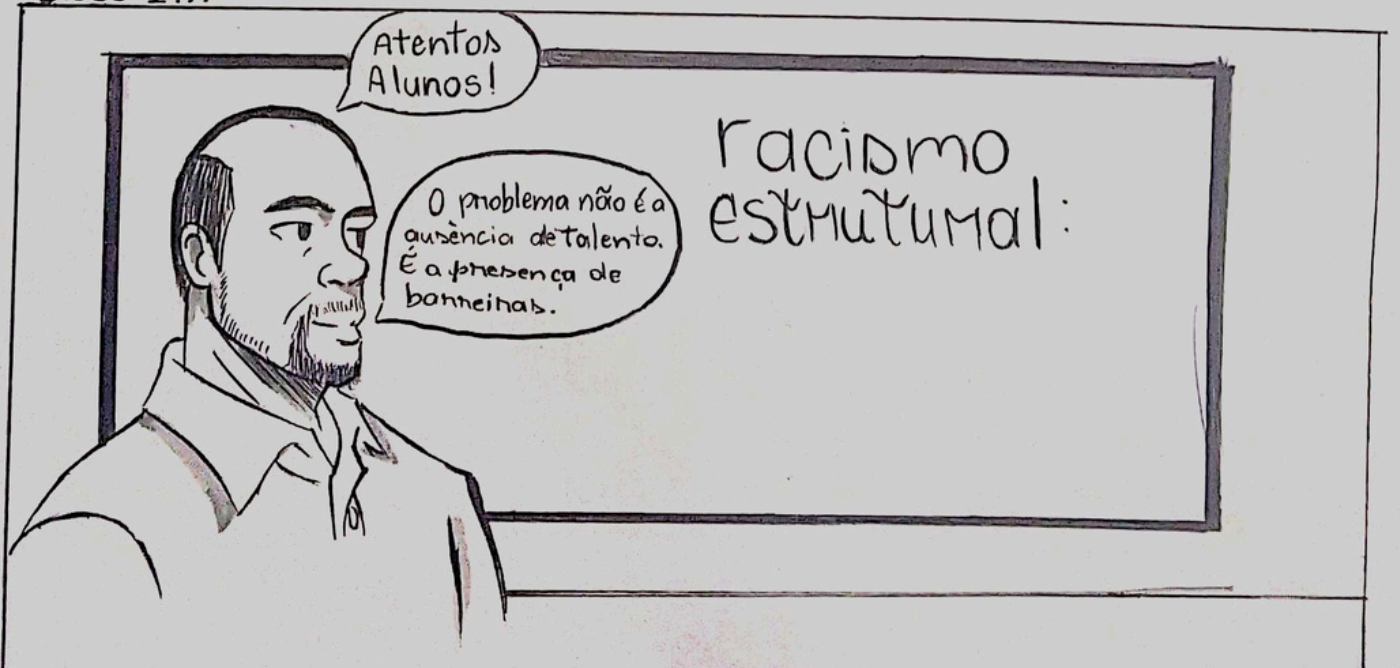 Atentos
Alunos!
O problema não é a
ausência de talento.
É a presença de
barreiras.
racismo
estrutural: